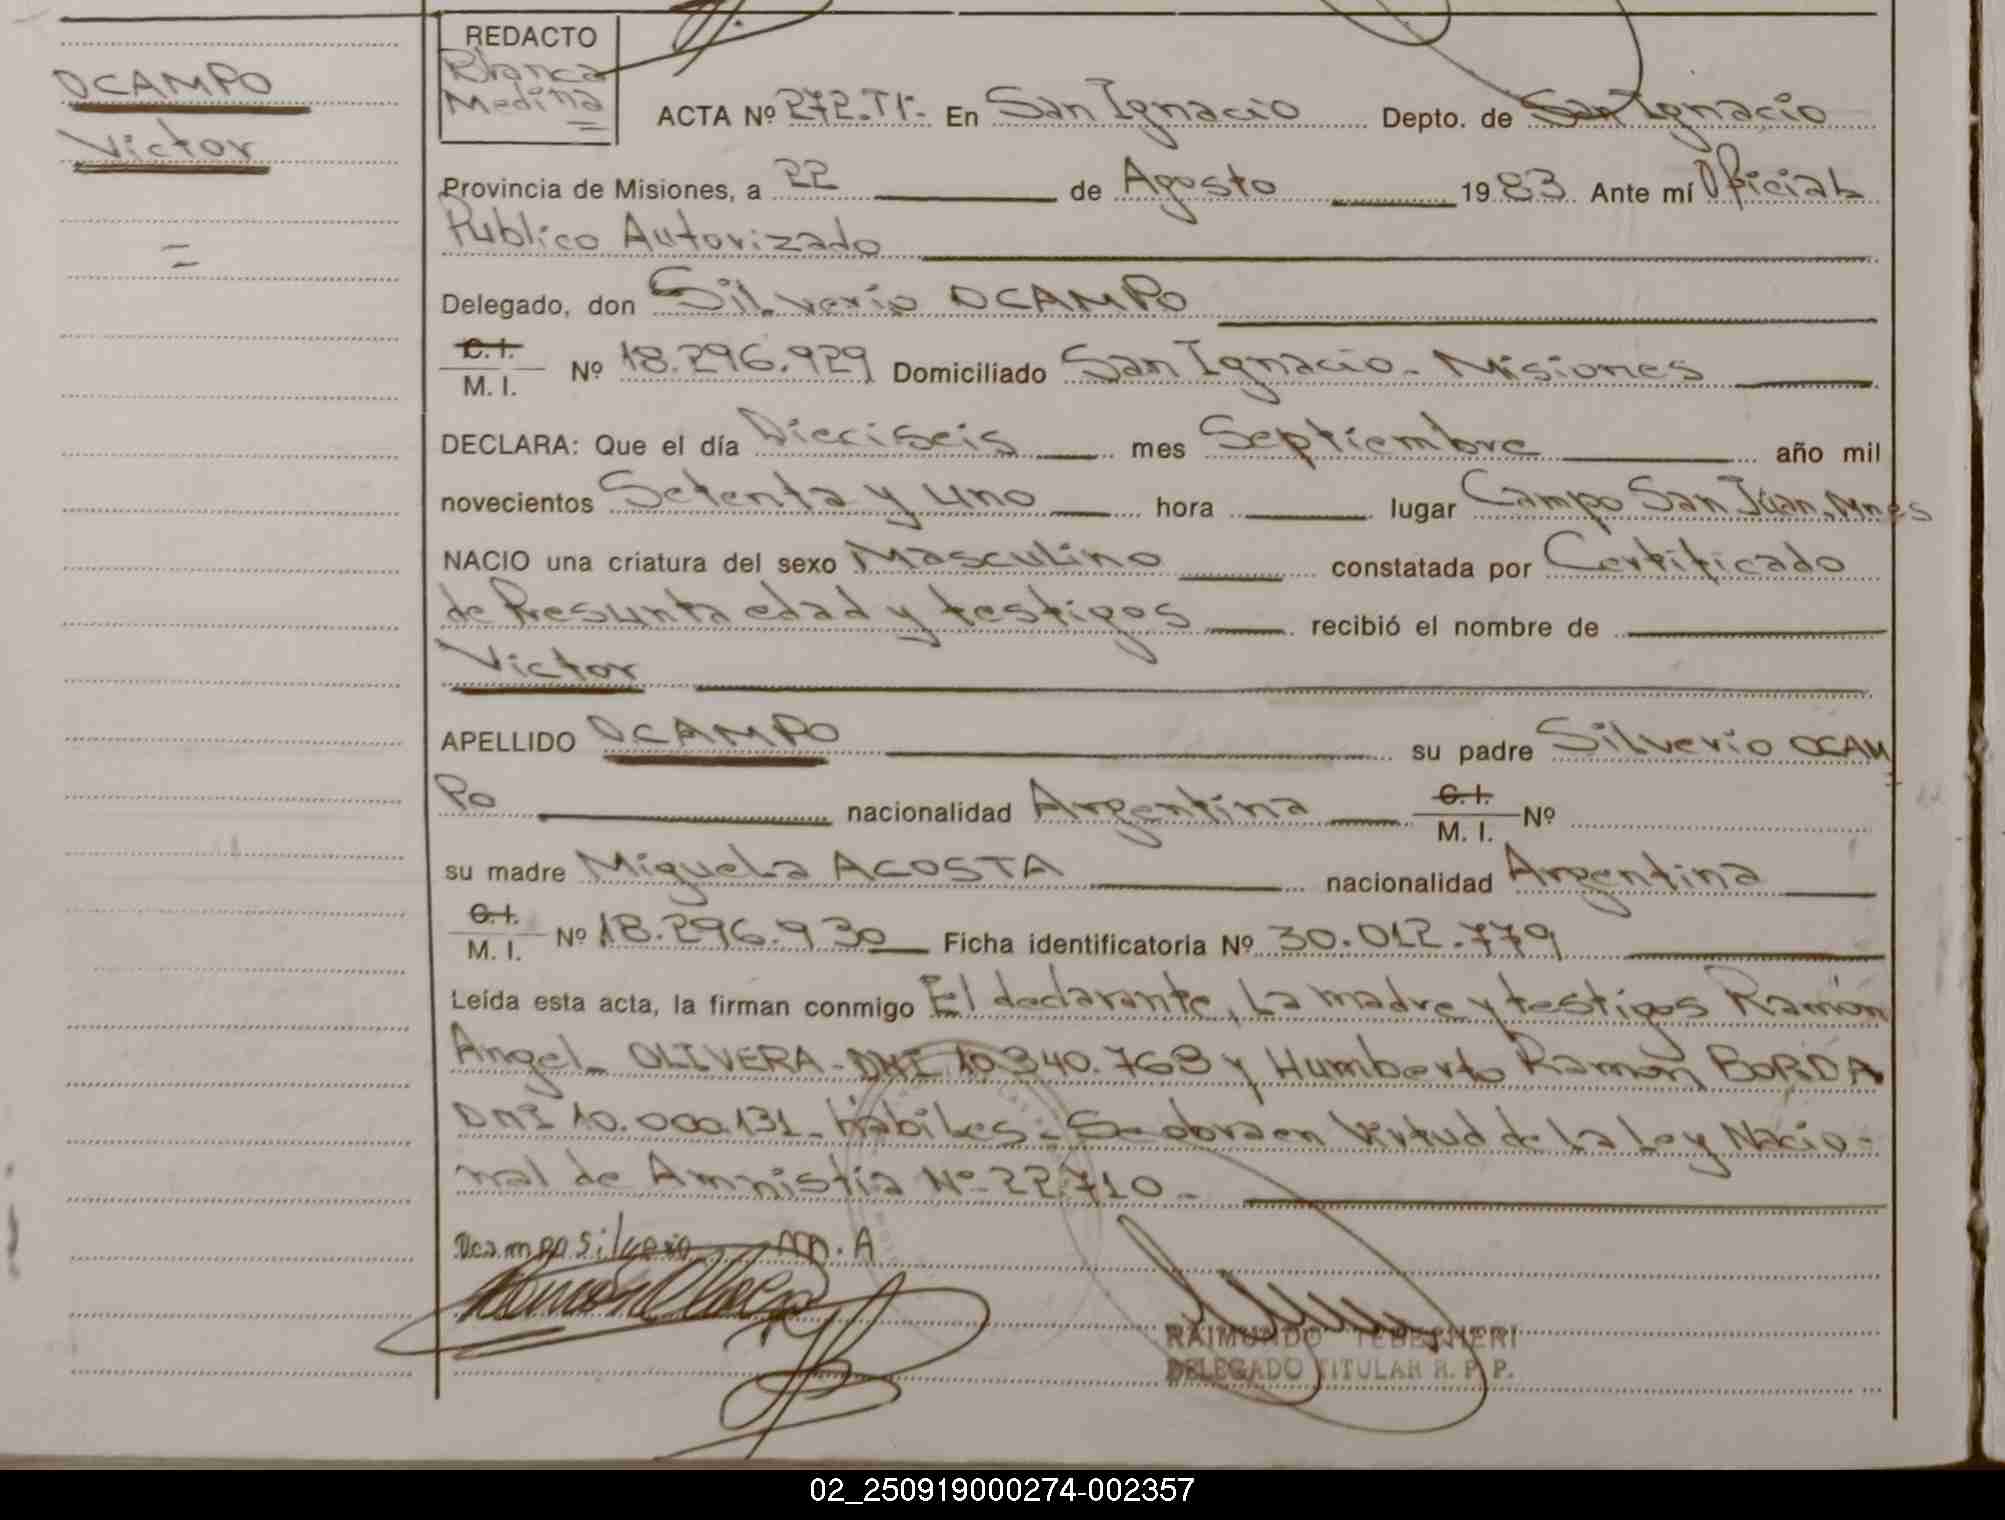 OCAMPO
Victor
=
REDACTO
Blanca
Medina
ACTA Nº 272.T1- En San Ignacio Depto. de San Ignacio
Provincia de Misiones, a 22 de Agosto 1983. Ante mí Oficial
Publico Autorizado
Delegado, don Silverio OCAMPO
C. I.
M. I. Nº 18.296.929 Domiciliado San Ignacio - Misiones
DECLARA: Que el día Dieciseis mes Septiembre año mil
novecientos Setenta y uno hora lugar Campo San Juan, Mnes
NACIO una criatura del sexo Masculino constatada por Certificado
de Presunta edad y testigos recibió el nombre de
Victor
APELLIDO OCAMPO su padre Silverio OCAM
PO nacionalidad Argentina C. I. M. I. Nº
su madre Miguela ACOSTA nacionalidad Argentina
C. I.
M. I. Nº 18.296.930 Ficha identificatoria Nº 30.012.779
Leída esta acta, la firman conmigo El declarante, La madre y testigos Ramón
Angel OLIVERA - DNI 10.340.763 y Humberto Ramón BORDA
DNI 10.000.131 - Hábiles - Se obra en Virtud de La Ley Nacio-
nal de Amnistia Nº 22.710 -
Ocampo Silverio M. A
RAIMUNDO
DELEGADO TITULAR R. P. P.
02_250919000274-002357